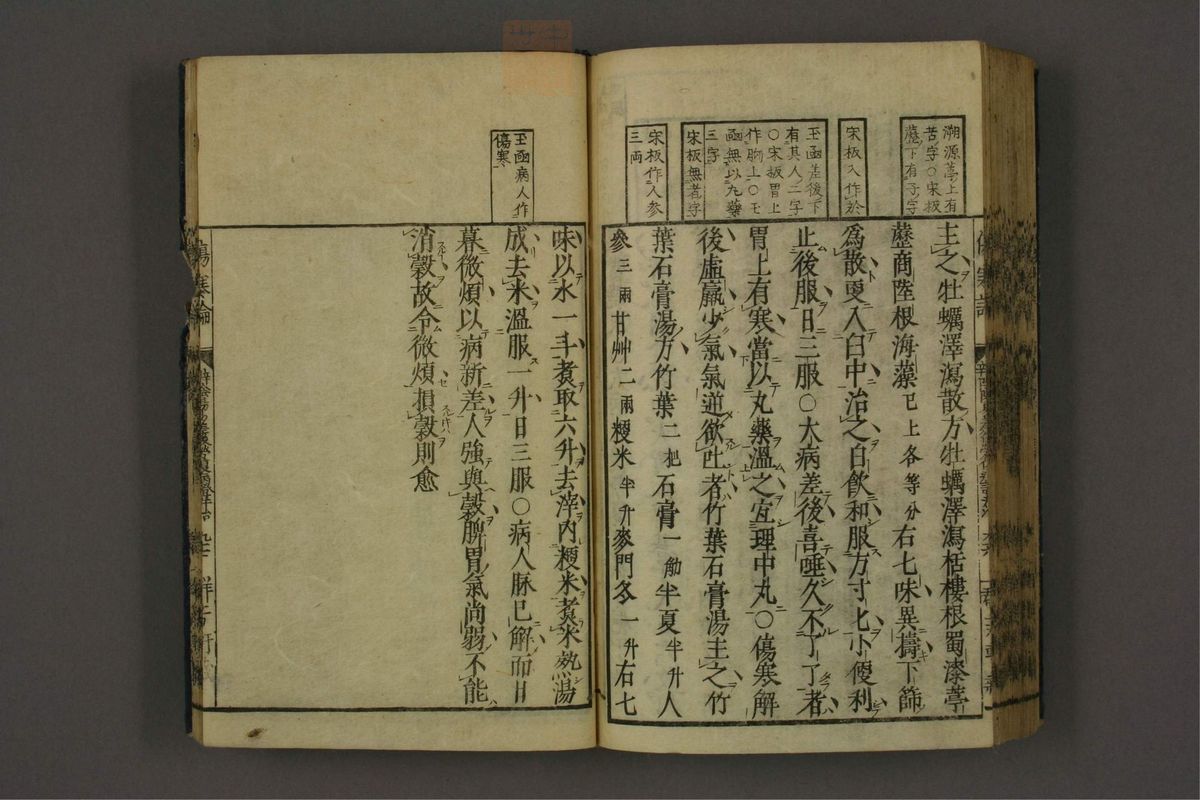 溯源葶上有
苦字○宋板
藶下有子字
宋板入作於
玉函差後下
有其人二字
○宋板胃上
作胸上○玉
函無以丸藥
三字
宋板無者字
宋板作人參
三兩
主之牡蠣澤瀉散方牡蠣澤瀉栝樓根蜀漆葶
藶商陸根海藻已上各等分右七味異擣下篩
爲散更入臼中治之白飮和服方寸匕小便利
止後服日三服○大病差後喜唾久不了了者
胃上有寒當以丸藥溫之宜理中丸○傷寒解
後虛羸少氣氣逆欲吐者竹葉石膏湯主之竹
葉石膏湯方竹葉二把石膏一觔半夏半升人
參三兩甘艸二兩粳米半升麥門冬一升右七
玉函病人作
傷寒
味以水一斗煑取六升去滓內粳米煑米熟湯
成去米溫服一升日三服○病人脉已解而日
暮微煩以病新差人強與穀脾胃氣尚弱不能
消穀故令微煩損穀則愈
傷寒論